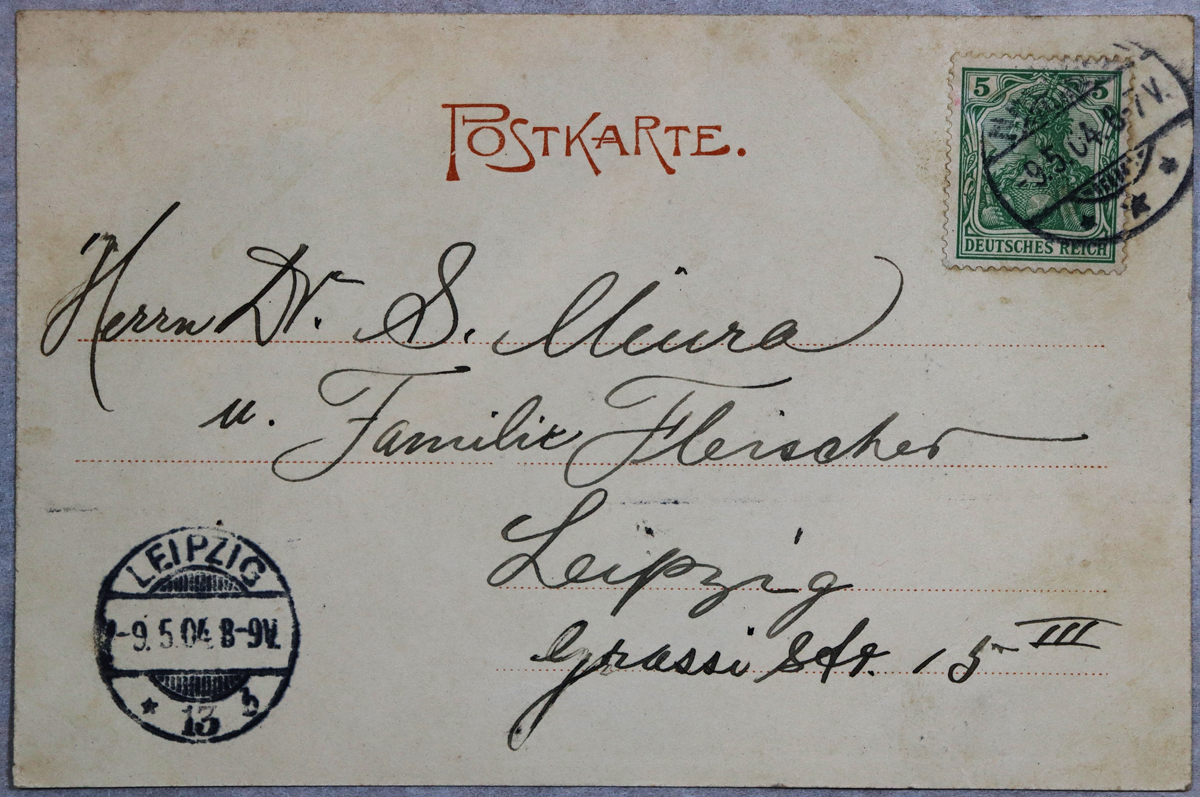 POSTKARTE.
5 5
-9.5.04. 8-7V.
DEUTSCHES REICH
Herrn Dr. S. Miura
u. Familie Fleischer
Leipzig
Grassi Str. 15 III
LEIPZIG
-9.5.04. 8-9V.
13 b